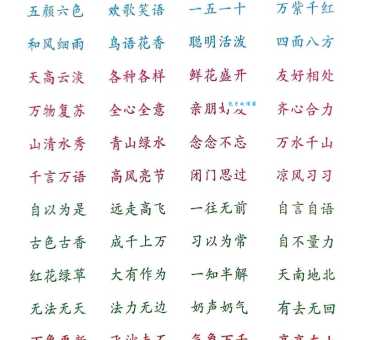 五颜六色 欢歌笑语 一五一十 万紫千红
和风细雨 鸟语花香 聪明活泼 四面八方
天高云淡 各种各样 鲜花盛开 友好相处
万物复苏 全心全意 亲朋好友 齐心合力
山清水秀 青山绿水 念念不忘 万水千山
千言万语 高风亮节 闭门思过 凉风习习
自以为是 远走高飞 一往无前 自言自语
古色古香 成千上万 习以为常 自不量力
红花绿草 大有作为 一知半解 天南地北
无法无天 法力无边 奶声奶气 有去无回